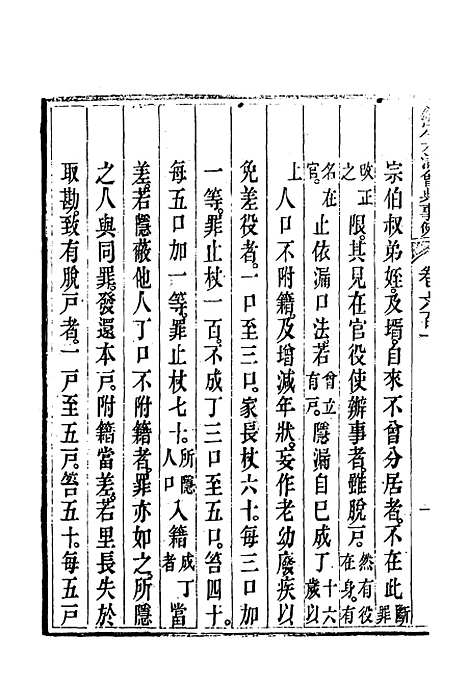 欽定大清會典事例 卷六百一
宗伯叔弟姪及壻自來不曾分居者不在此斷罪
改正之限其見在官役使辦事者雖脫戶然有役在身有
名在官止依漏口法若曾立有戶隱漏自己成丁十六歲以
上人口不附籍及增減年狀妄作老幼廢疾以
免差役者一口至三口家長杖六十每三口加
一等罪止杖一百不成丁三口至五口笞四十
每五口加一等罪止杖七十所隱人口入籍成丁者當
差若隱蔽他人丁口不附籍者罪亦如之所隱
之人與同罪發還本戶附籍當差若里長失於
取勘致有脫戶者一戶至五戶笞五十每五戶